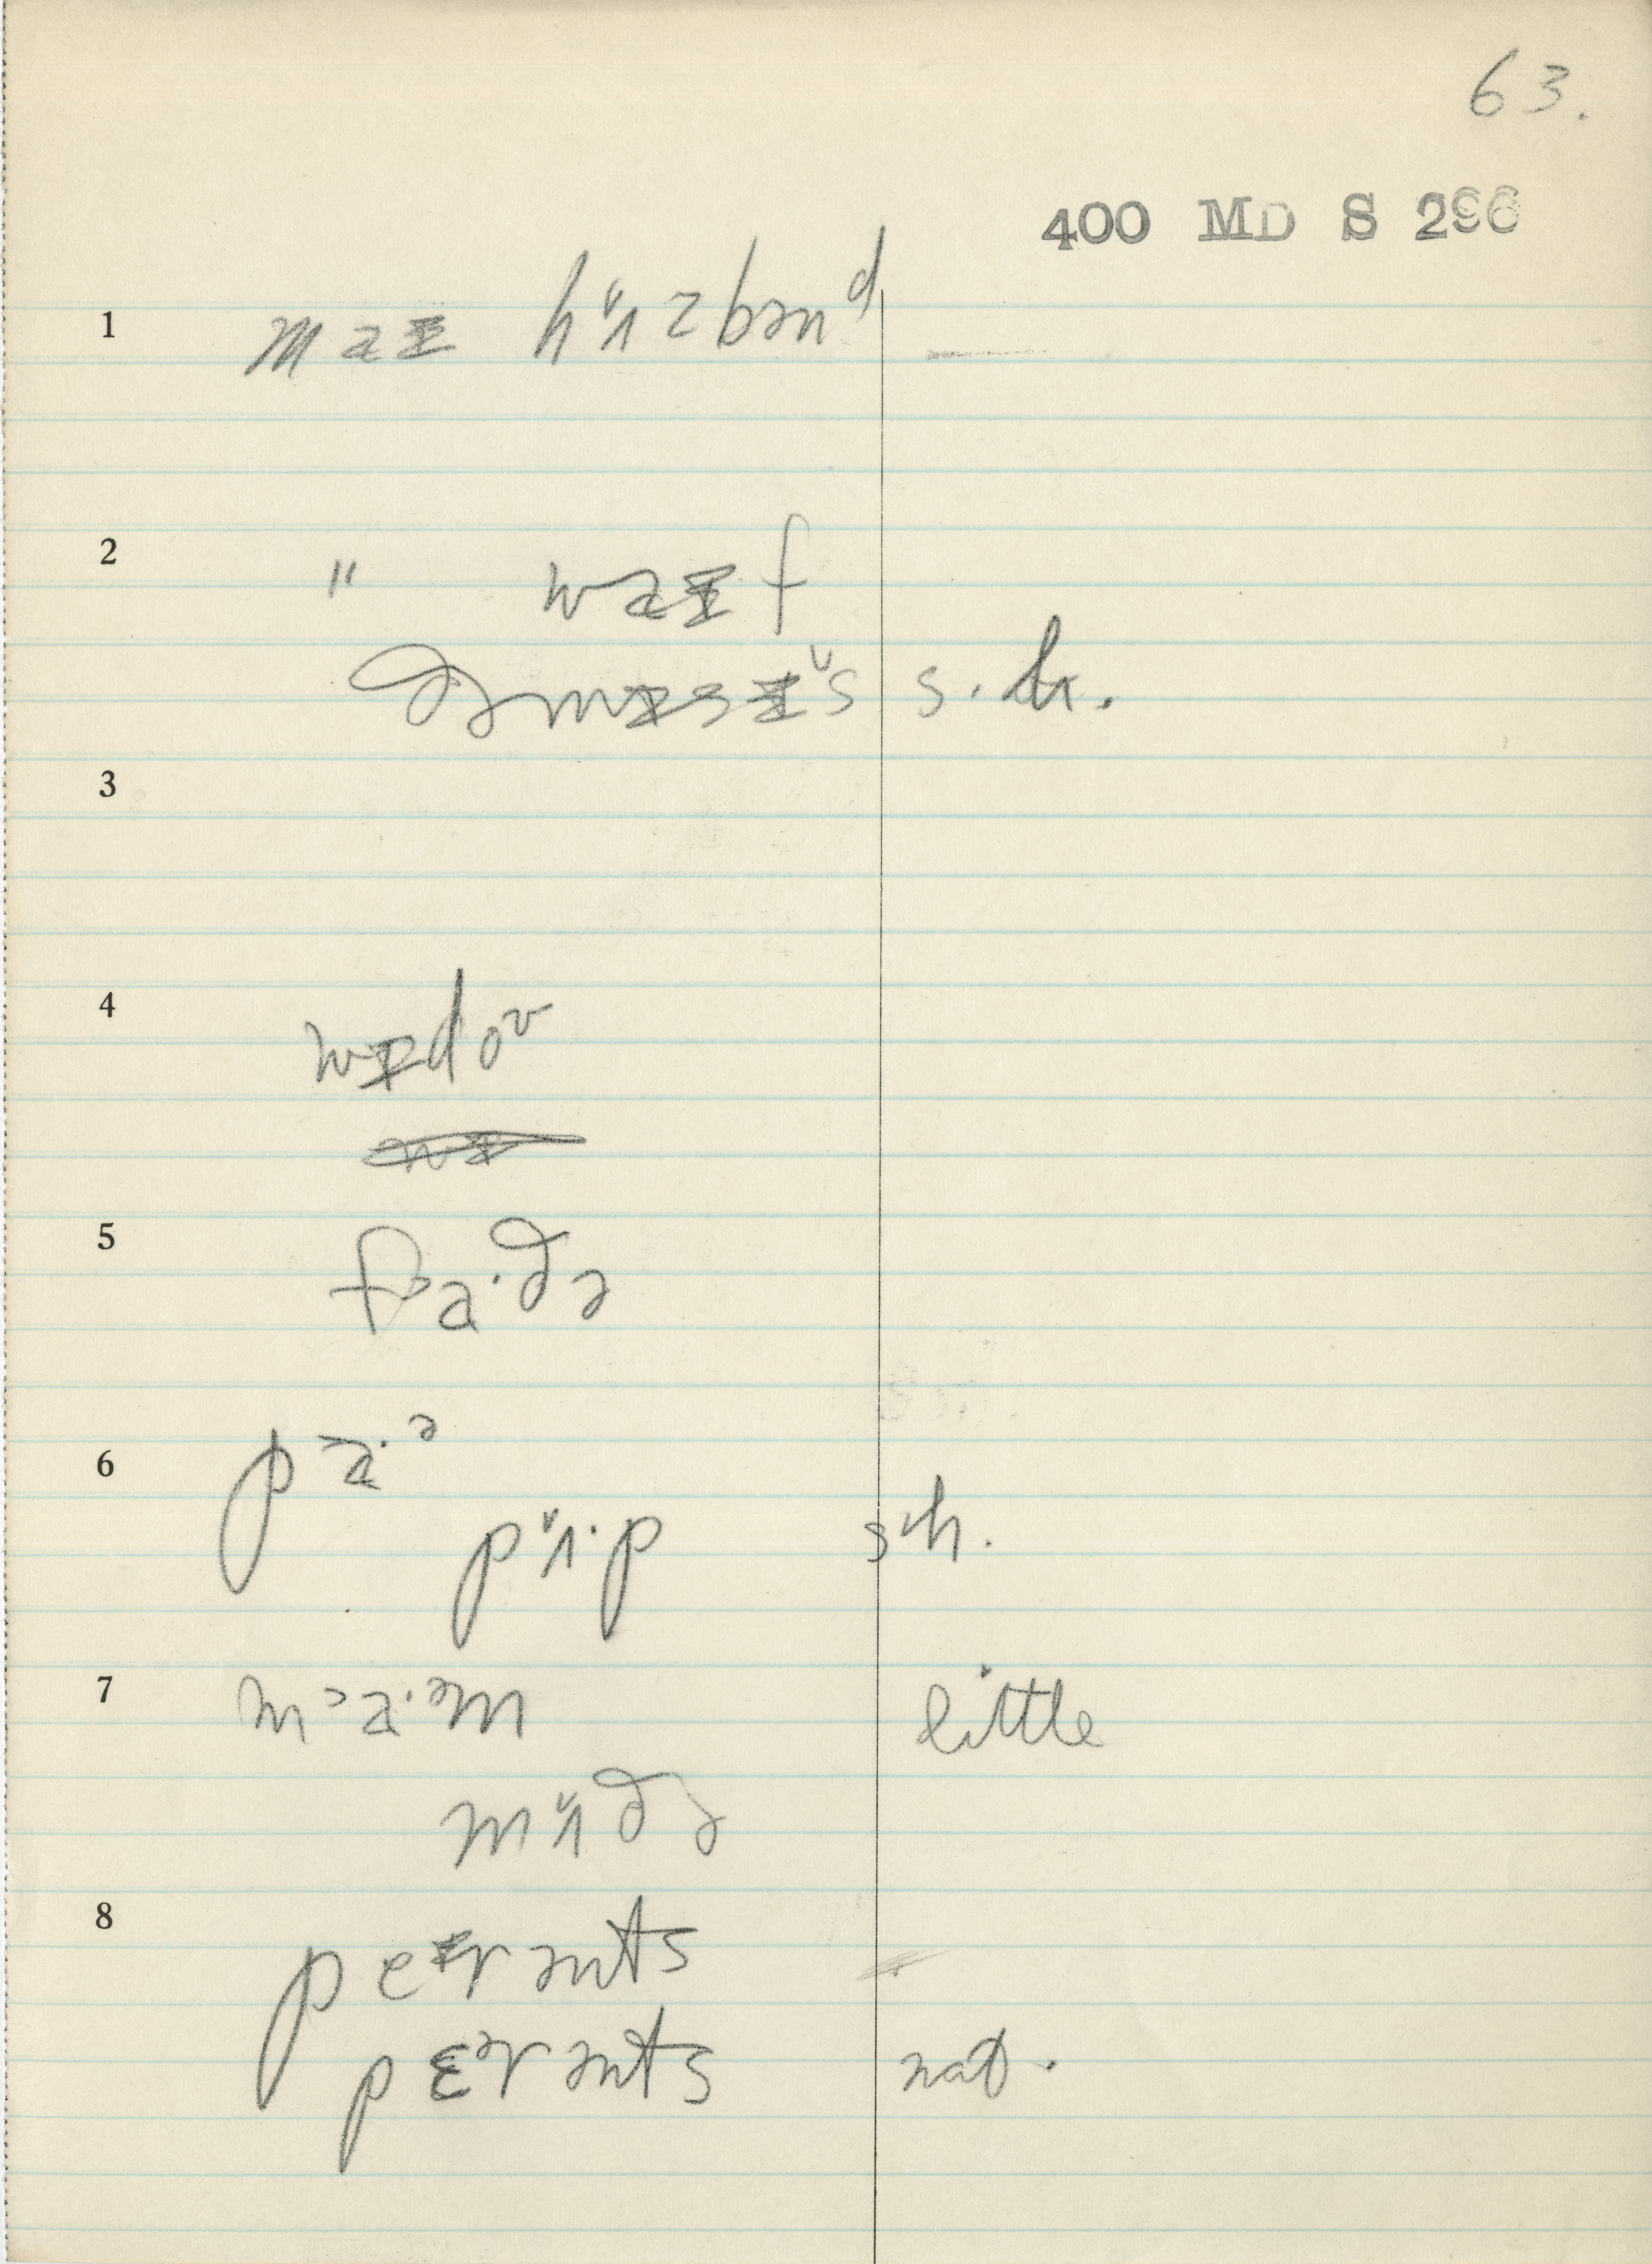 63.
400 MD S 296
1 maɪ hʌ̌zbənᵈ —
2 " waɪf
ðə mɪsɪ̌s s. h.
3
4 wɪdoᶷ
5 fɒa·ðə
6 pɒa·ᵊ
pʌ̌·p s'h.
7 mɒa·ᵊm little
mʌ̌ðə
8 peᶦrənts
pɛᵊrənts nat.